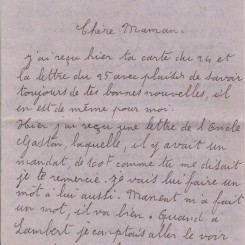 Chère Maman.
j'ai reçu hier ta carte du 24 et
la lettre du 25 avec plaisir de savoir
toujours de tes bonnes nouvelles, il
en est de même pour moi.
Hier j'ai reçu une lettre de l'Oncle
Gaston, laquelle, il y avait un
mandat, de 10f comme tu me disait
je te remercie. Je vais lui faire un
mot à lui aussi. Manent m'a fait
un mot, il va bien. Quand à
Lambert je comptais aller le voir